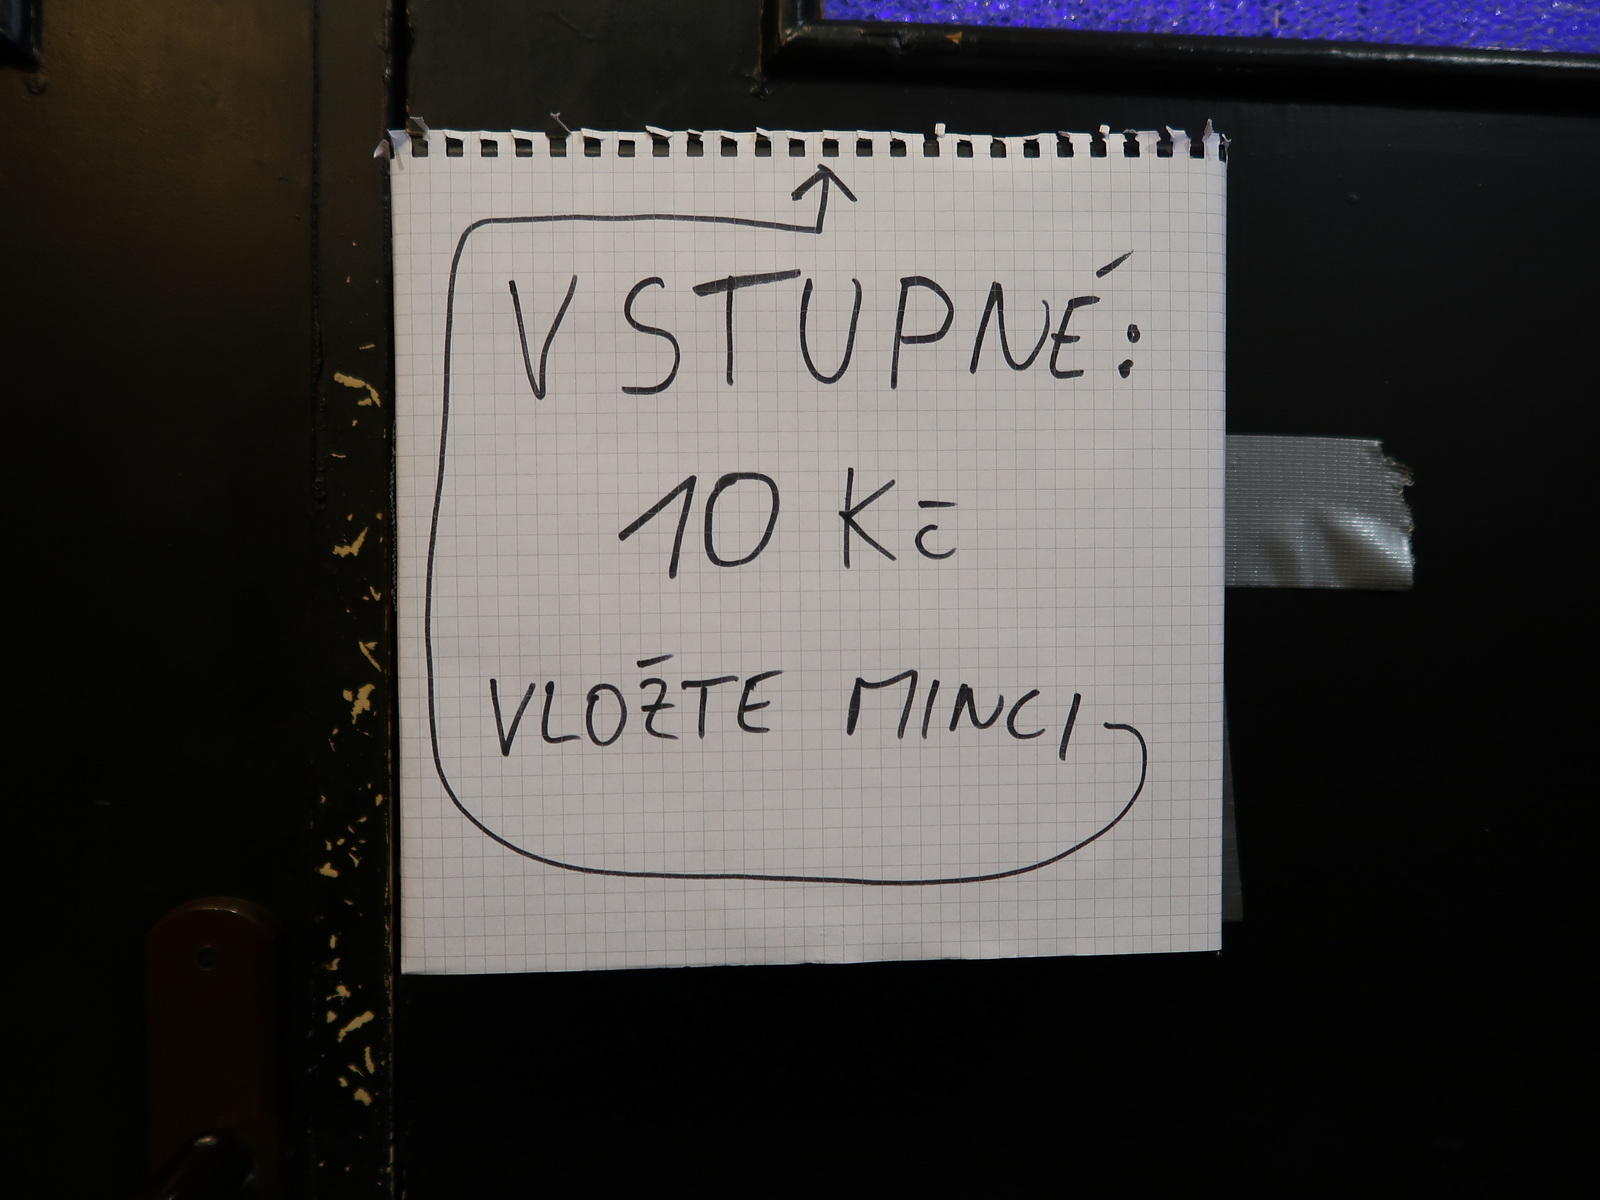 VSTUPNÉ:
10 Kč
VLOŽTE MINCI